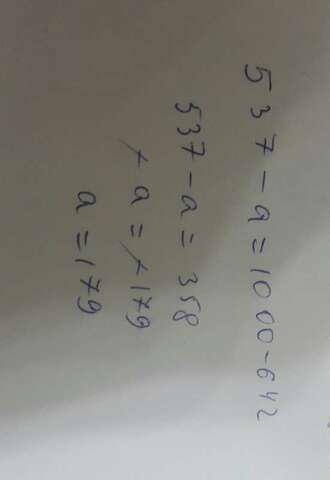 537 - a = 1000 - 642
537 - a = 358
- a = - 179
a = 179